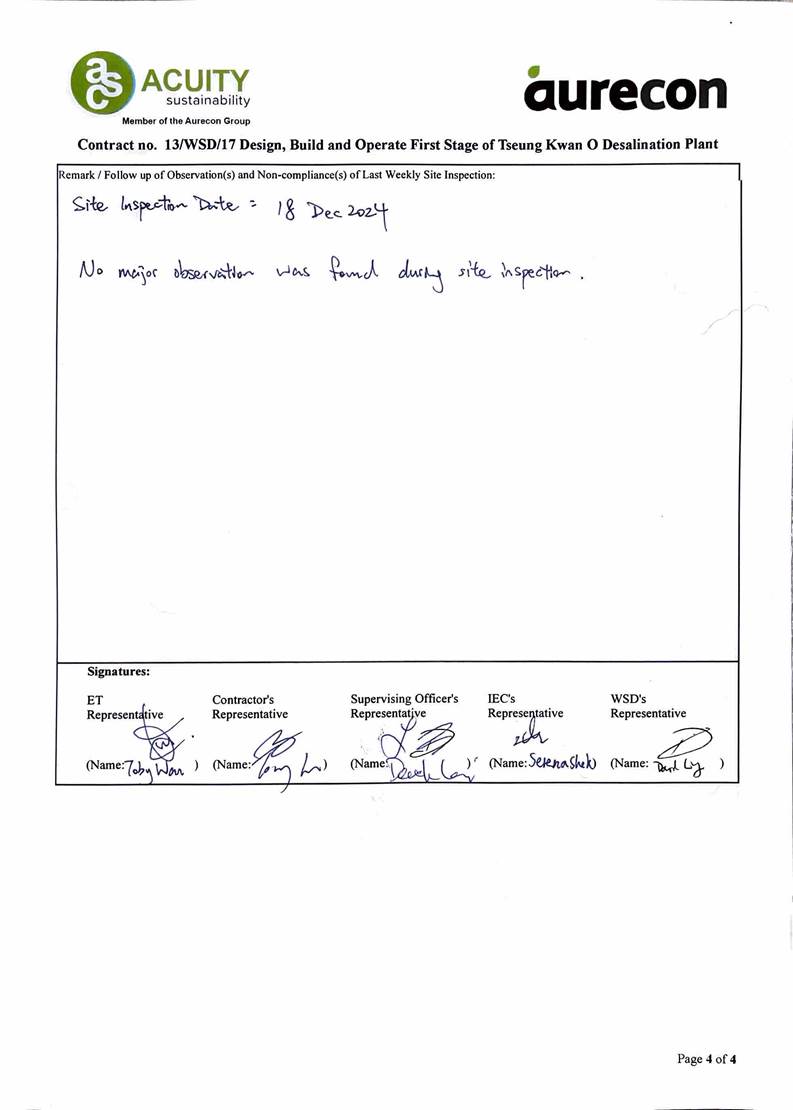 asc ACUITY
sustainability
Member of the Aurecon Group
aurecon
Contract no. 13/WSD/17 Design, Build and Operate First Stage of Tseung Kwan O Desalination Plant
Remark / Follow up of Observation(s) and Non-compliance(s) of Last Weekly Site Inspection:
Site Inspection Date : 18 Dec 2024
No major observation was found during site inspection.
Signatures:
ET Representative
Contractor's Representative
Supervising Officer's Representative
IEC's Representative
WSD's Representative
(Name: Toby Wan )
(Name: )
(Name: Derek )
(Name: Serena Shek)
(Name: )
Page 4 of 4